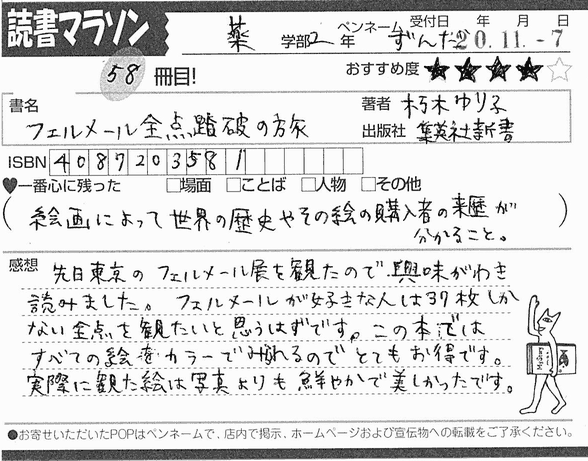 読書マラソン
薬 学部 2 年 ペンネーム ずんだ 受付日 年 月 日
20.11.-7
58 冊目!
おすすめ度 ★★★★☆
書名 フェルメール全点踏破の旅
著者 朽木ゆり子
出版社 集英社新書
ISBN 4087203581
♥一番心に残った □場面 □ことば □人物 □その他
(絵画によって世界の歴史やその絵の購入者の来歴が
分かること。)
感想 先日東京のフェルメール展を観たので興味がわき
読みました。フェルメールが好きな人は37枚しか
ない全点を観たいと思うはずです。この本では
すべての絵をカラーでみれるのでとてもお得です。
実際に観た絵は写真よりも鮮やかで美しかったです。
●お寄せいただいたPOPはペンネームで、店内で掲示、ホームページおよび宣伝物への転載をご了承ください。